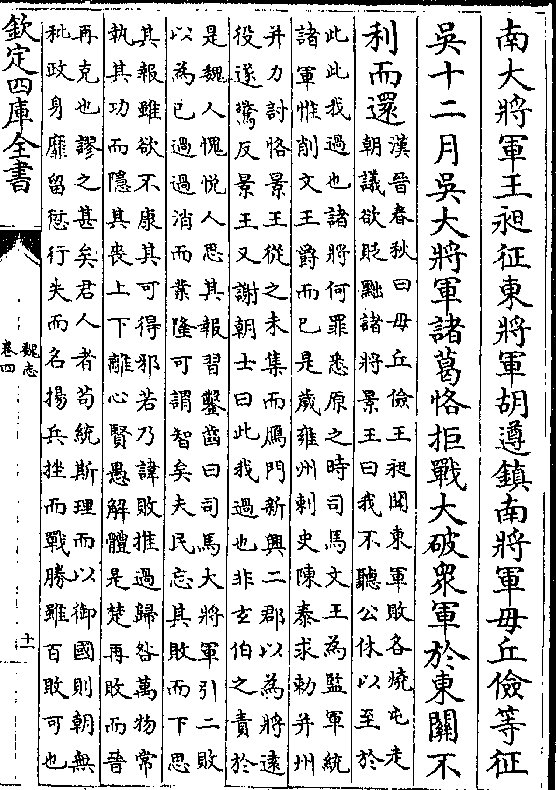 南大將軍王昶征東將軍胡遵鎮南將軍毋丘儉等征
吳十二月吳大將軍諸葛恪拒戰大破衆軍於東關不
利而還
漢晉春秋曰毋丘儉王昶聞東軍敗各燒屯走
朝議欲貶黜諸將景王曰我不聽公休以至於
此此我過也諸將何罪悉原之時司馬文王為監軍統
諸軍惟削文王爵而已是歲雍州刺史陳泰求勅并州
并力討恪景王從之未集而鴈門新興二郡以為將遠
役遂驚反景王又謝朝士曰此我過也非玄伯之責於
是魏人愧悅人思其報習鑿齒曰司馬大將軍引二敗
以為已過過消而業隆可謂智矣夫民忘其敗而下思
其報雖欲不康其可得邪若乃諱敗推過歸咎萬物常
執其功而隱其喪上下離心賢愚解體是楚再敗而晉
再克也謬之甚矣君人者苟統斯理而以御國則朝無
秕政身靡留愆行失而名揚兵挫而戰勝雖百敗可也
欽定四庫全書
魏志
卷四
十一